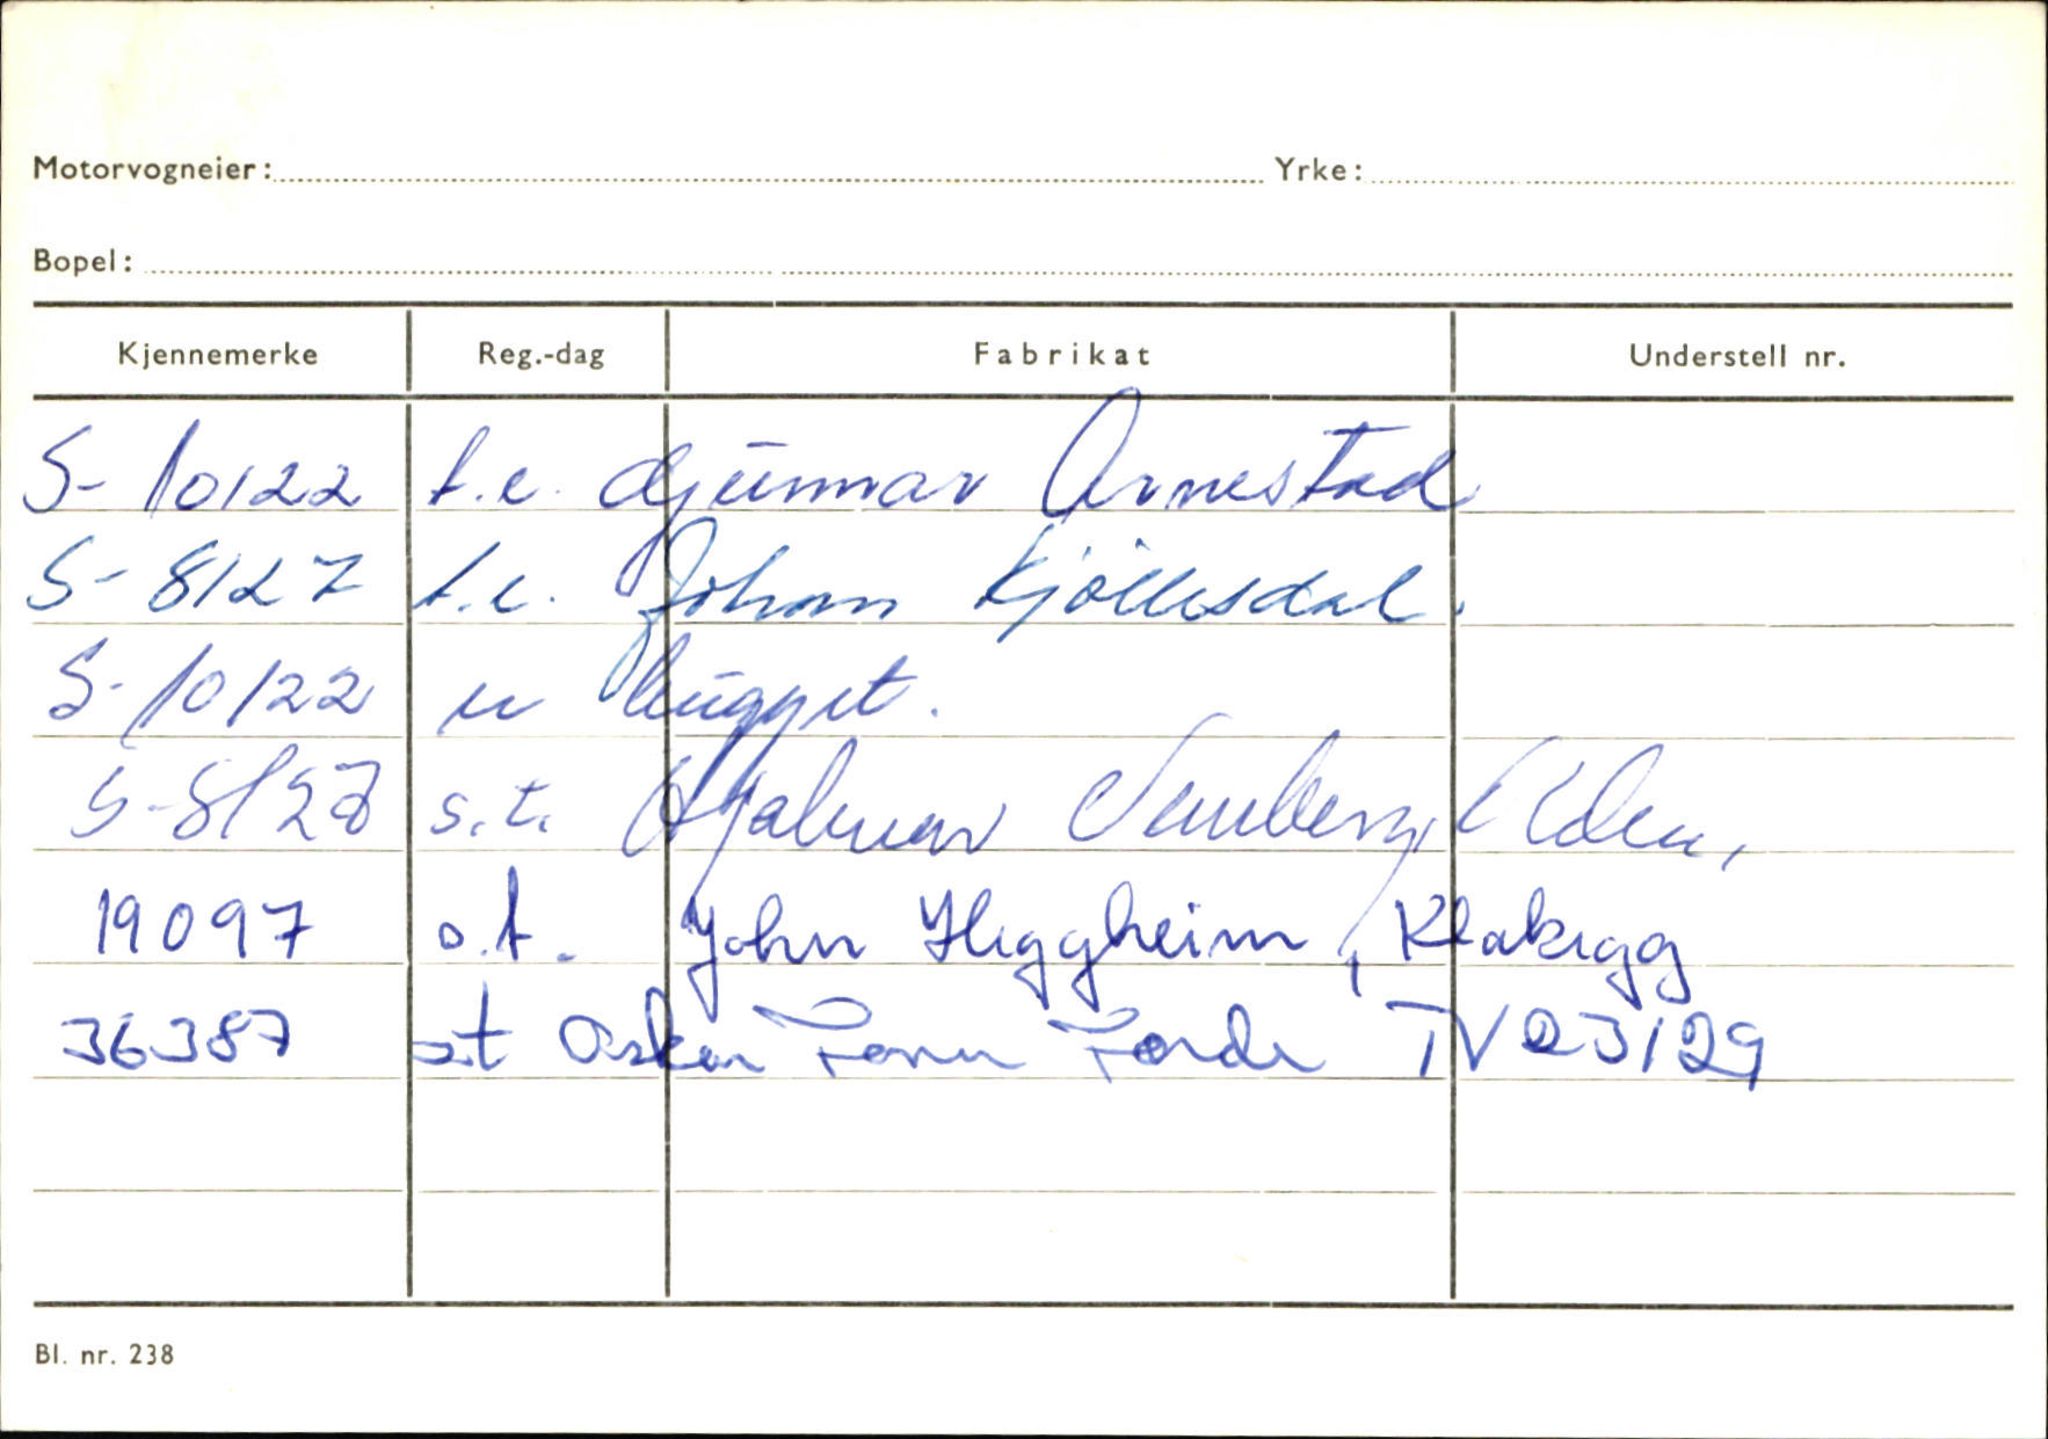 Motorvogneier: Yrke:
Bopel:
Kjennemerke Reg.-dag Fabrikat Understell nr.
S-10122 t.e. Gjunnar Arnestad
S-8127 t.e. Johan Kjöllesdal.
S-10122 er hugget.
S-8127 s.t. Hjalmar
19097 s.t. John Heggheim, Klakegg
36387 st Oskar Førde TV 23129
Bl. nr. 238